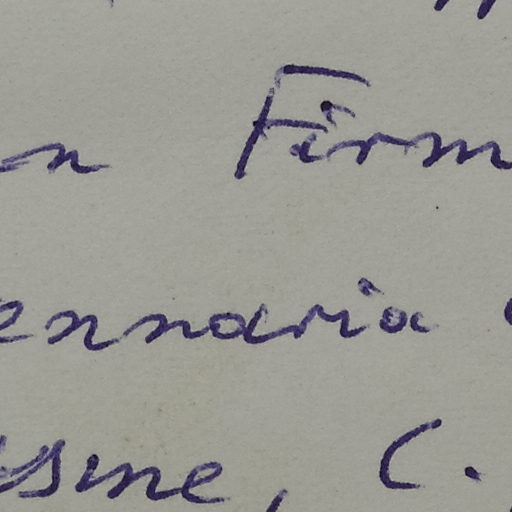 n Firm
ennaria
ysine, C.